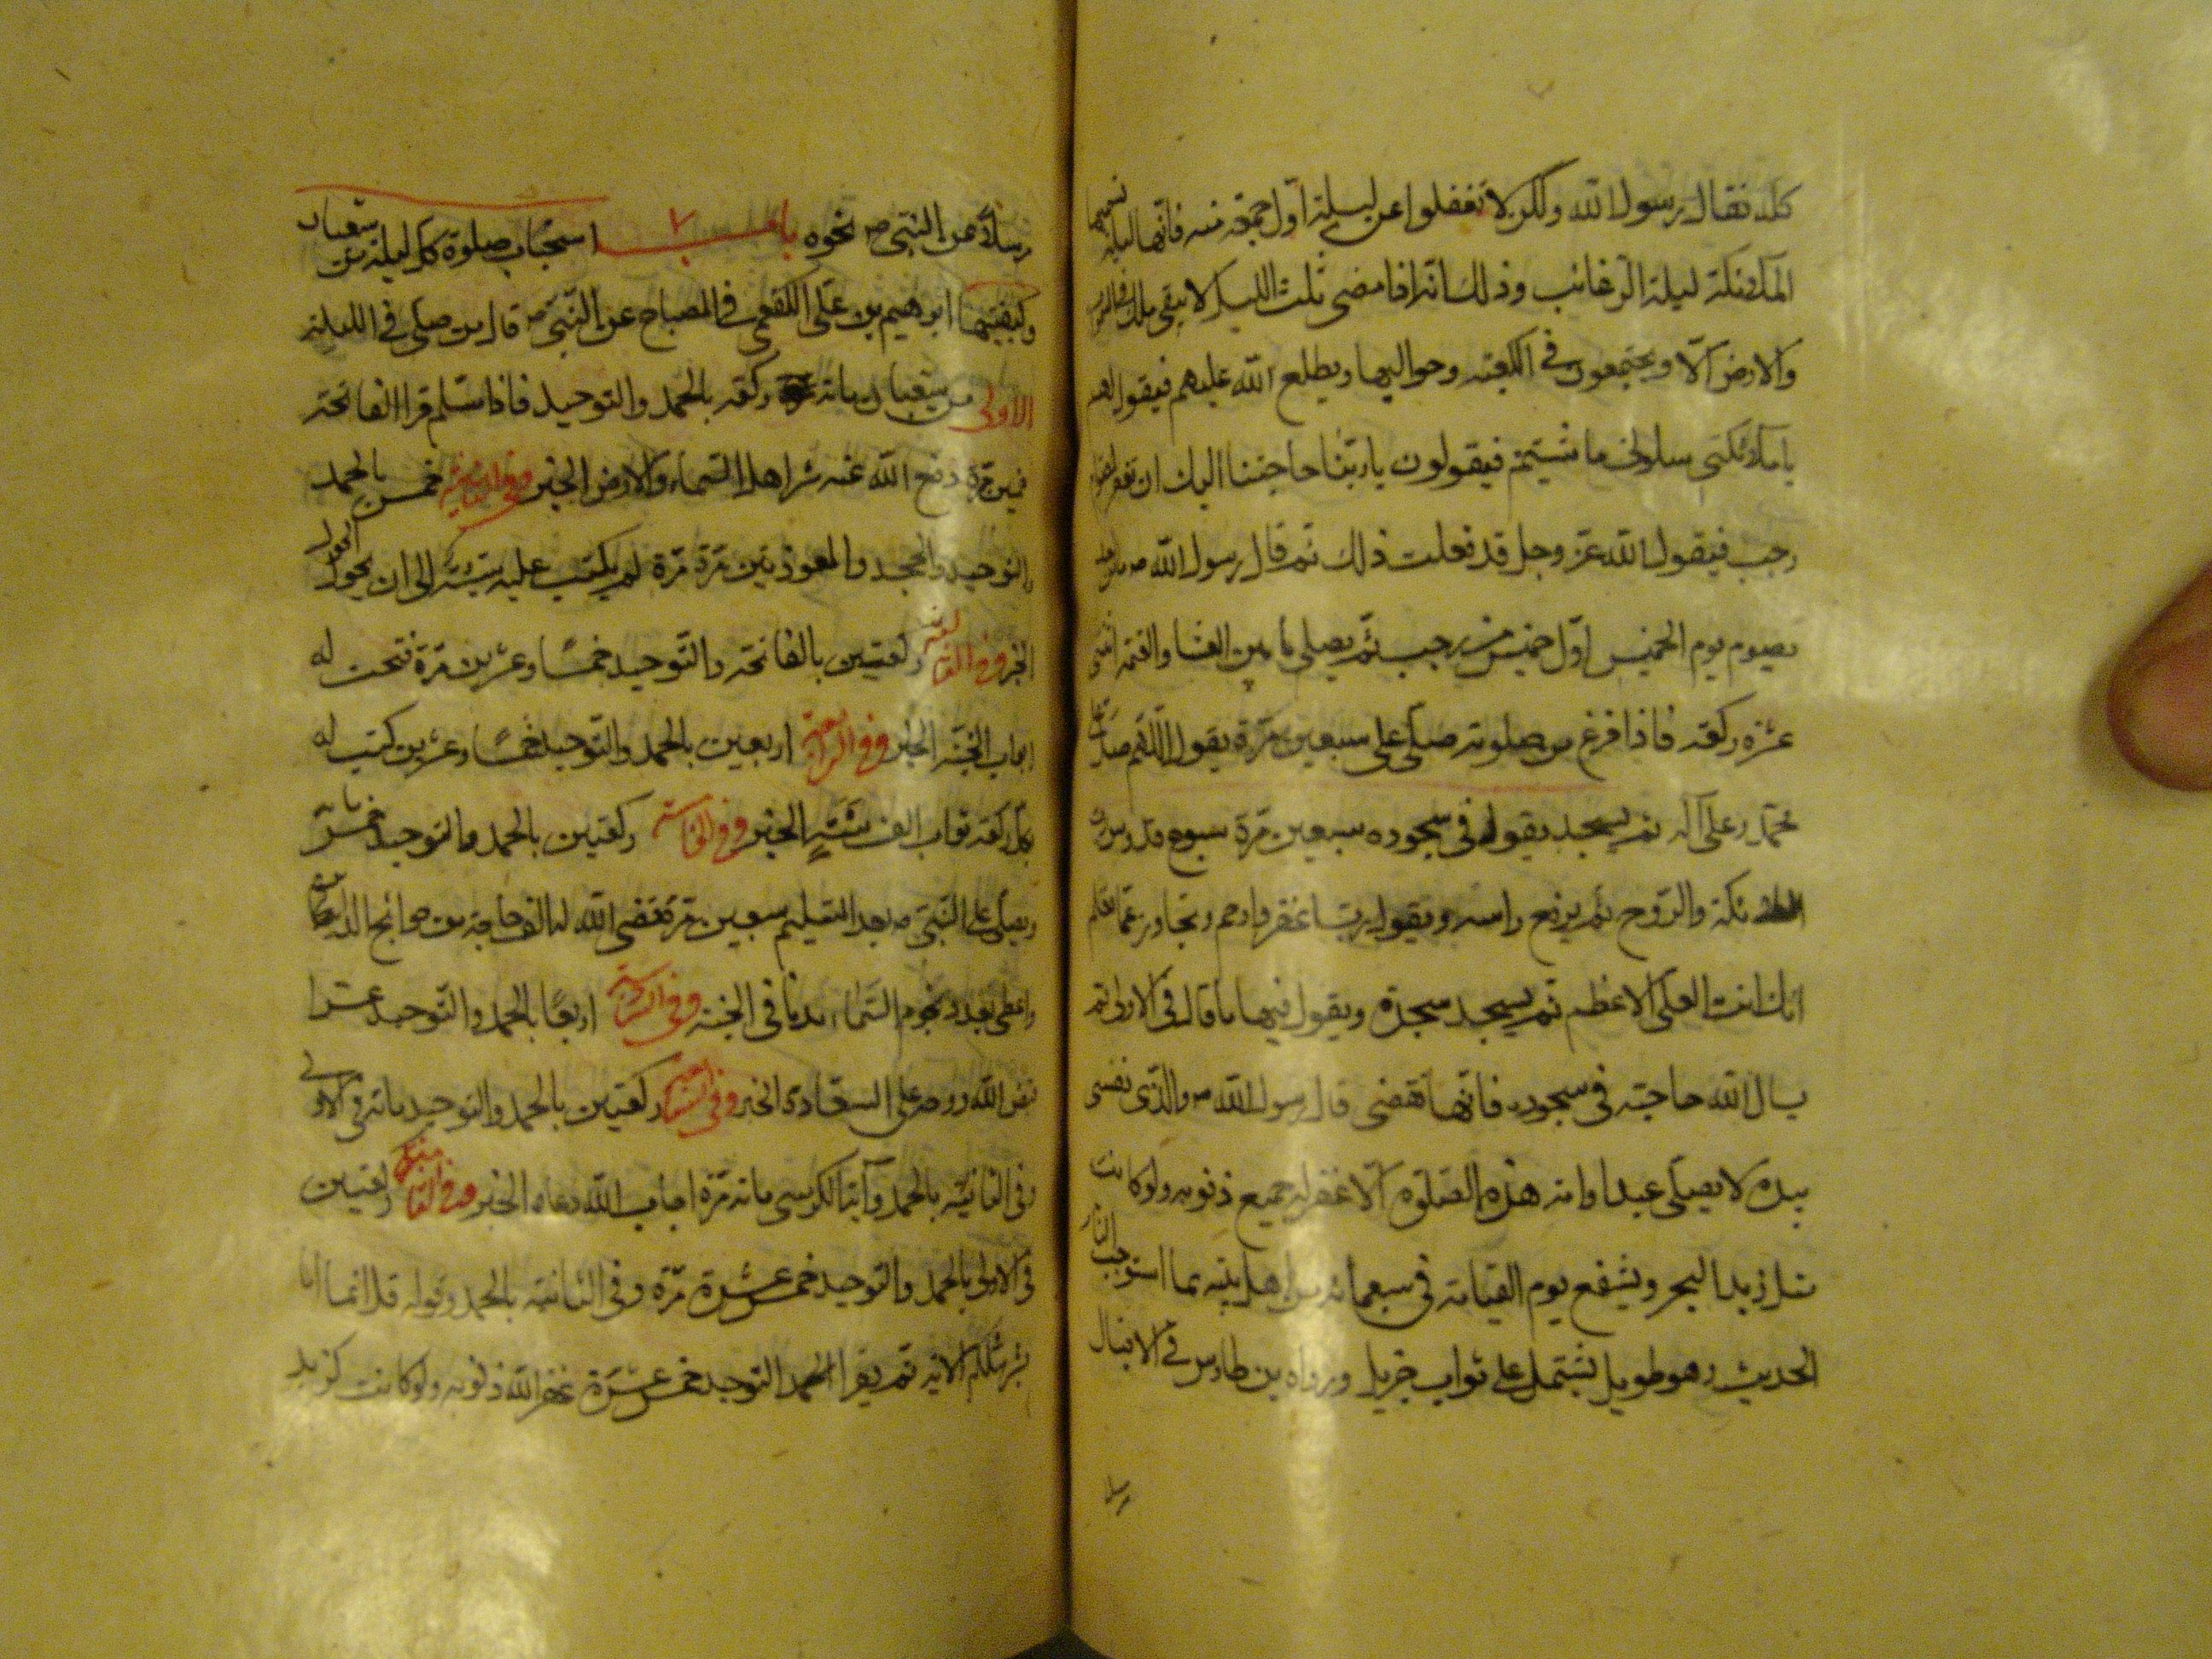 كله فقال رسول الله ولكن لا تغفلوا عن ليلة اول جمعة منه فانها ليلة تسميها
الملائكة ليلة الرغائب وذلك انه اذا مضى ثلث الليل لا يبقى ملك في السموات
والارض الا ويجتمعون في الكعبة وحواليها ويطلع الله عليهم فيقول لهم
يا ملائكتي سلوني ما شئتم فيقولون يا ربنا حاجتنا اليك ان تغفر لصوام
رجب فيقول الله عز وجل قد فعلت ذلك ثم قال رسول الله ص ما من احد
يصوم يوم الخميس اول خميس من رجب ثم يصلي ما بين العشا والعتمة اثنتي
عشرة ركعة فاذا فرغ من صلوته صلى علي سبعين مرة يقول اللهم صل على
محمد وعلى آله ثم يسجد يقول في سجوده سبعين مرة سبوح قدوس رب
الملائكة والروح ثم يرفع راسه ويقول رب اغفر وارحم وتجاوز عما تعلم
انك انت العلي الاعظم ثم يسجد سجدة ويقول فيها ما قال في الاولى ثم
يسال الله حاجته في سجوده فانها تقضى قال رسول الله ص والذي نفسي
بيده لا يصلي عبد او امة هذه الصلوة الا غفر له جميع ذنوبه ولو كانت
مثل زبد البحر ويشفع يوم القيامة في سبعمائة من اهل بيته مما استوجب النار
الحديث وهو طويل يشتمل على ثواب جزيل ورواه بن طاوس في الاقبال
مرسلا عن النبي ص نحوه باب ٧ استحباب صلوة كل ليلة من شعبان
وكيفيتها ابرهيم بن علي الكفعمي في المصباح عن النبي ص قال من صلى في الليلة
الاولى من شعبان مائة ركعة بالحمد والتوحيد فاذا سلم قرا الفاتحة
خمسين مرة دفع الله عنه شر اهل السماء والارض الخبر وفي الثانية خمسين بالحمد
والتوحيد والمعوذتين مرة مرة لم يكتب عليه سيئة الى ان يحول الحول
الخبر وفي الثالثة ركعتين بالفاتحة والتوحيد خمسا وعشرين مرة فتحت له
ابواب الجنة الخبر وفي الرابعة اربعين بالحمد والتوحيد خمسا وعشرين كتب له
بكل ركعة ثواب الف سنة الخبر وفي الخامسة ركعتين بالحمد والتوحيد خمسمائة
ويصلي على النبي ص بعد التسليم سبعين مرة قضى الله له الف حاجة من حوائج الدارين
واعطي بعدد نجوم السماء مدنا في الجنة وفي السادسة اربعا بالحمد والتوحيد عشرا
قبض الله روحه على السعادة الخبر وفي السابعة ركعتين بالحمد والتوحيد مائة في الاولى
وفي الثانية بالحمد وآية الكرسي مائة مرة اجاب الله دعاه الخبر وفي الثامنة ركعتين
في الاولى بالحمد والتوحيد خمس عشرة مرة وفي الثانية بالحمد وقوله قل انما انا
بشر مثلكم الاية ثم يقرا الحمد التوحيد خمس عشرة غفر الله ذنوبه ولو كانت كزبد